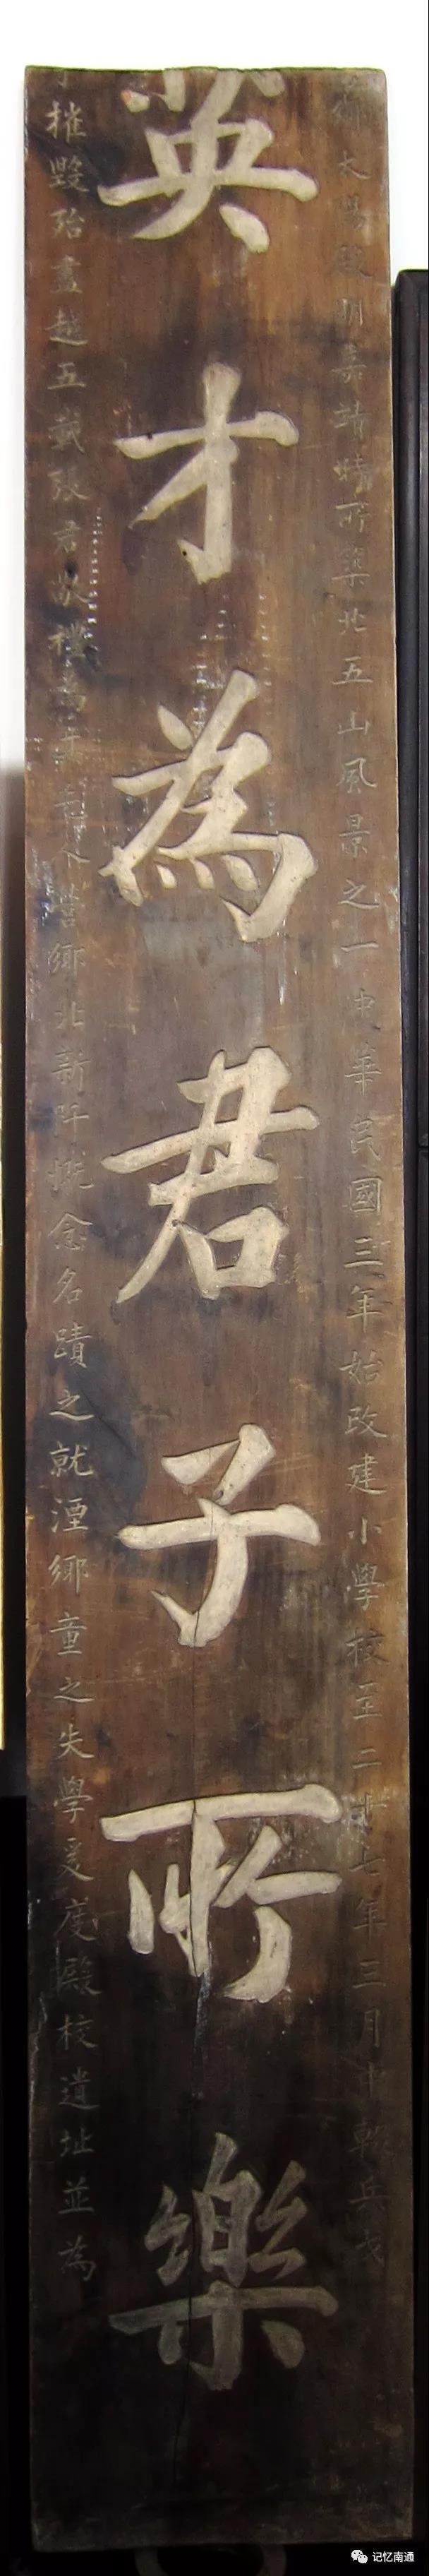 太陽殿明嘉靖時所築北五山風景之一中華民國三年始改建小學校至二十七年三月中毀兵戎
英才為君子所樂
摧毀殆盡越五載張君敬禮為
營鄉北新阡慨念名蹟之就湮鄉童之失學爰度殿校遺址並為
记忆南通